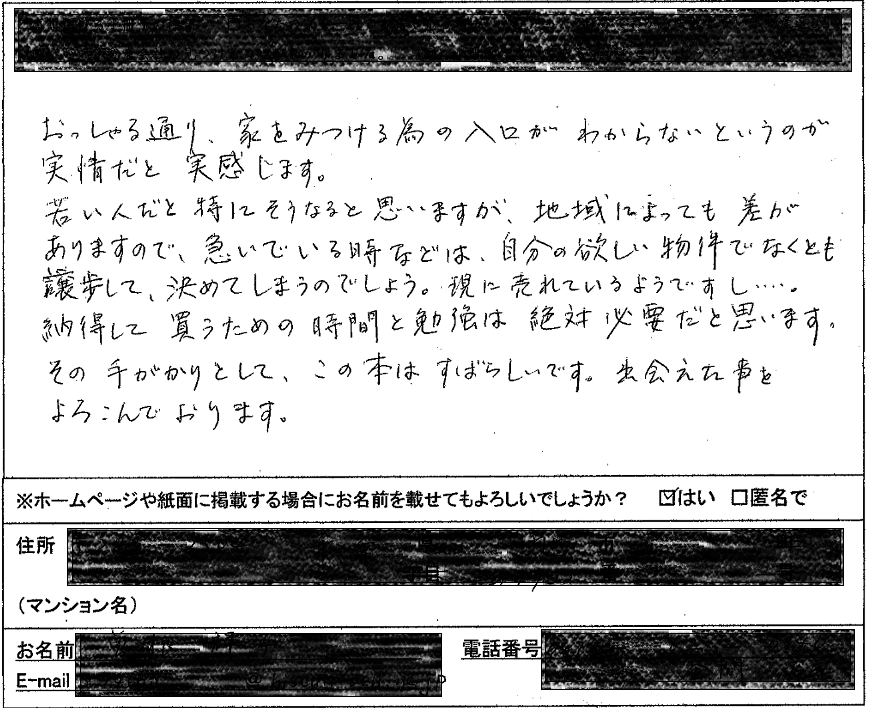 おっしゃる通り、家をみつける為の入口がわからないというのが
実情だと実感じます。
若い人だと特にそうなると思いますが、地域によっても差が
ありますので、急いでいる時などは、自分の欲しい物件でなくとも
譲歩して、決めてしまうのでしょう。現に売れているようですし……。
納得して買うための時間と勉強は絶対必要だと思います。
その手がかりとして、この本はすばらしいです。出会えた事を
よろこんでおります。
※ホームページや紙面に掲載する場合にお名前を載せてもよろしいでしょうか？ ☑はい □匿名で
住所
（マンション名）
お名前 電話番号
E-mail